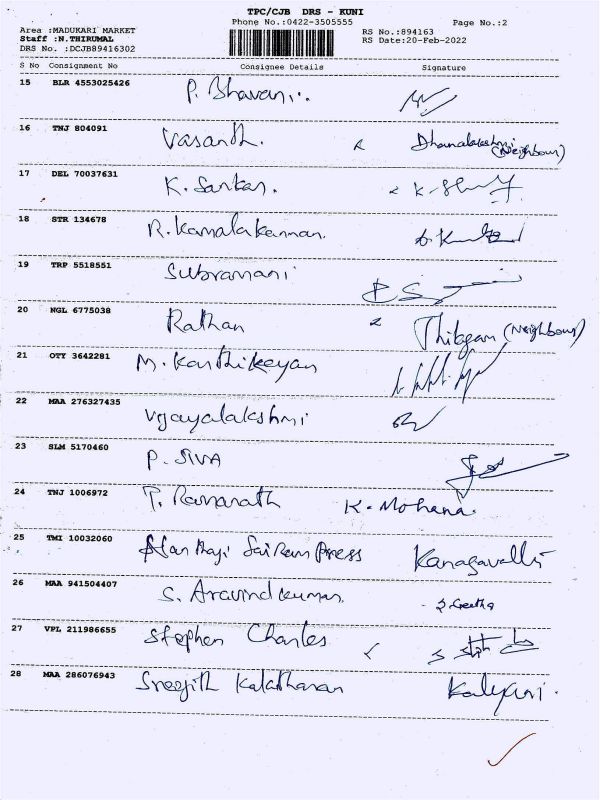 TPC/CJB DRS - KUNI
Phone No.:0422-3505555 Page No.:2
Area :MADUKARI MARKET RS No.:894163
Staff :N.THIRUMAL RS Date:20-Feb-2022
DRS No. :DCJB89416302
S No Consignment No Consignee Details Signature
15 BLR 4553025426 P. Bhavani.
16 TNJ 804091 Vasanth. Dhanalakshmi (Neighbour)
17 DEL 70037631 K. Sankar.
18 STR 134678 R. Kamalakannan.
19 TRP 5518551 Subramani
20 NGL 6775038 Rathan Thilagam (Neighbour)
21 OTY 3642281 M. Karthikeyan
22 MAA 276327435 Vijayalakshmi
23 SLM 5170460 P. SIVA
24 TNJ 1006972 T. Ramanath K. Mohana.
25 TMI 10032060 Sai Ram Press Kanagavalli
26 MAA 941504407 S. Aravind kumar. S. Geetha
27 VPL 211986655 Stephen Charles
28 MAA 286076943 Sreejith Kalatharan Kalyani.